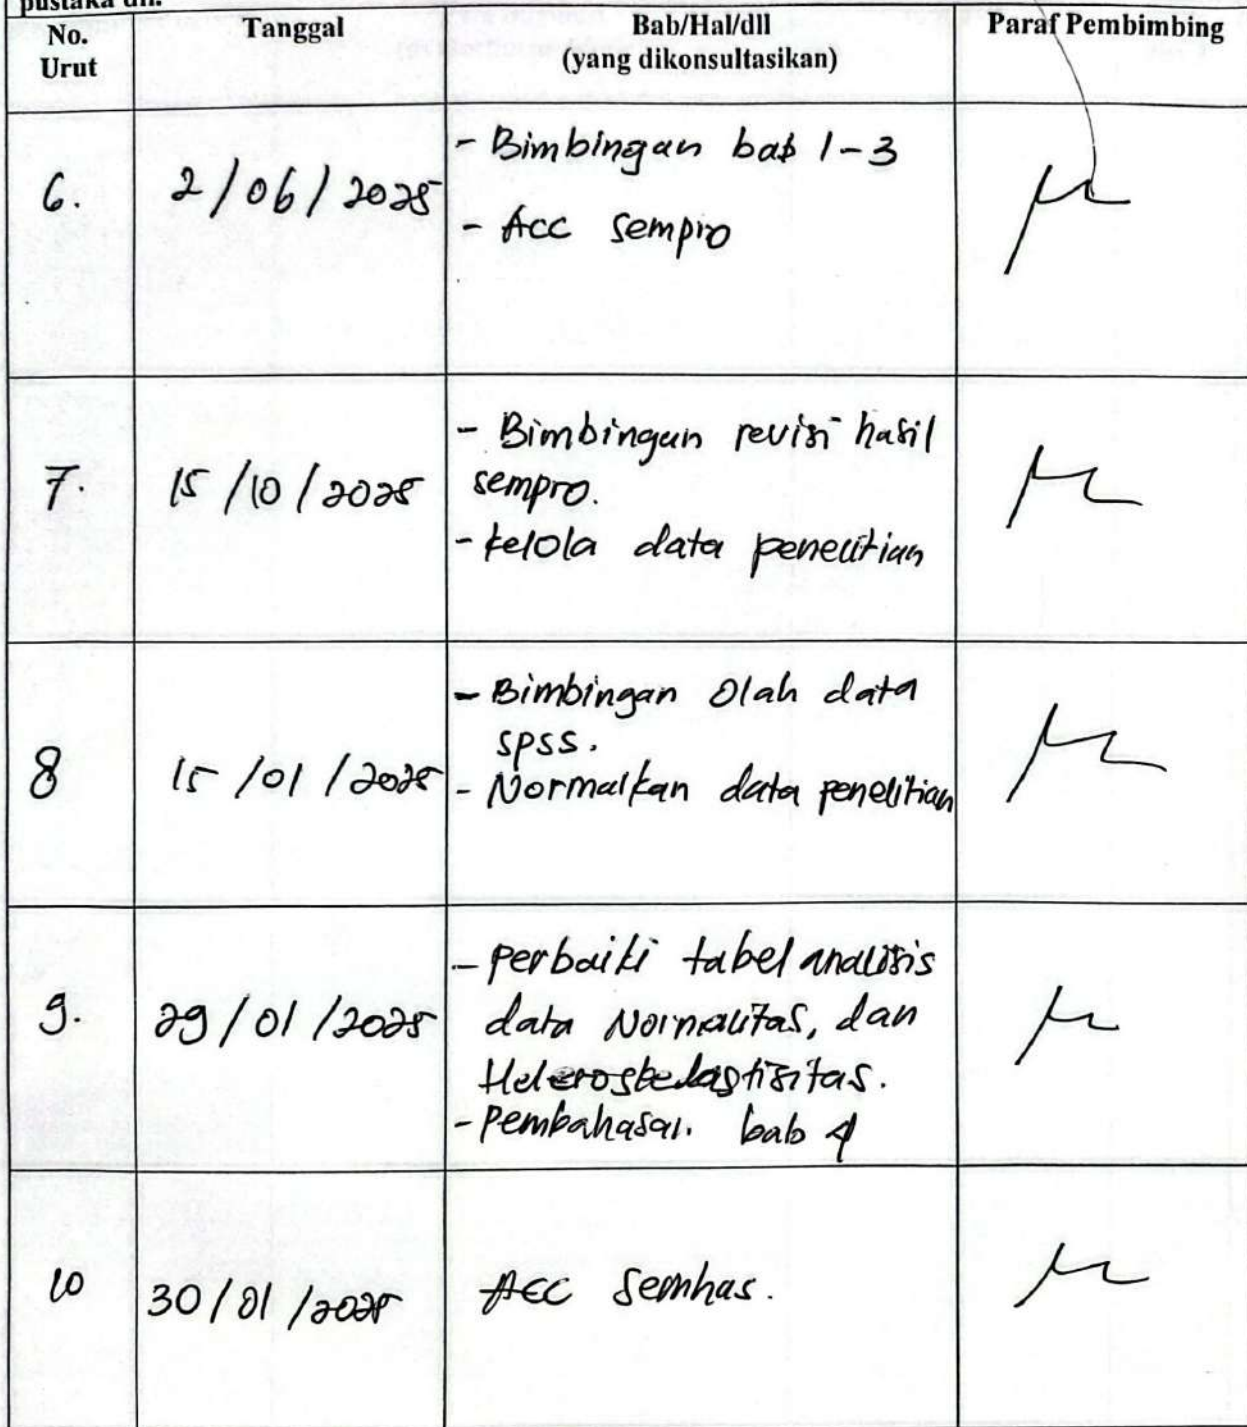 pustaka dll.
No. Urut	Tanggal	Bab/Hal/dll (yang dikonsultasikan)	Paraf Pembimbing
6.	2/06/2025
- Bimbingan bab 1-3
- Acc sempro
7.	15/10/2025
- Bimbingan revisi hasil
sempro.
- kelola data penelitian
8	15/01/2025
- Bimbingan Olah data
SPSS.
- Normalkan data penelitian
9.	29/01/2025
- perbaiki tabel analisis
data Normalitas, dan
Heteroskedastisitas.
- Pembahasan bab 4
10	30/01/2025
Acc Semhas.